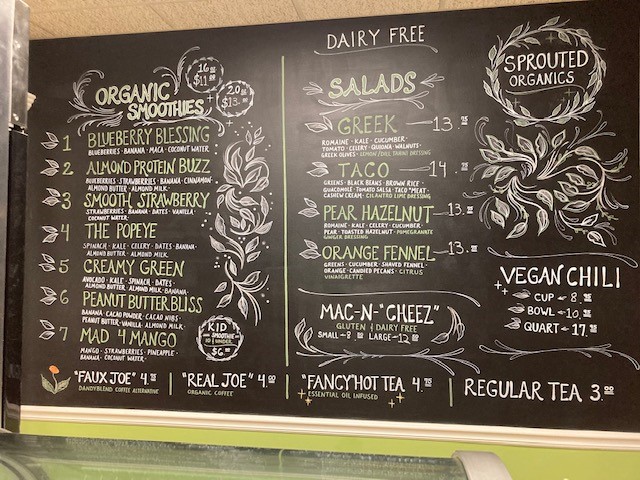 DAIRY FREE
ORGANIC
SMOOTHIES
16 oz
$11.00
20 oz
$13.
1 BLUEBERRY BLESSING
BLUEBERRIES · BANANA · MACA · COCONUT WATER
2 ALMOND PROTEIN BUZZ
BLUEBERRIES · STRAWBERRIES · BANANA · CINNAMON
ALMOND BUTTER · ALMOND MILK ·
3 SMOOTH STRAWBERRY
STRAWBERRIES · BANANA · DATES · VANILLA ·
COCONUT WATER ·
4 THE POPEYE
SPINACH · KALE · CELERY · DATES · BANANA ·
ALMOND BUTTER · ALMOND MILK ·
5 CREAMY GREEN
AVOCADO · KALE · SPINACH · DATES ·
ALMOND BUTTER · ALMOND MILK · BANANA ·
6 PEANUT BUTTER BLISS
BANANA · CACAO POWDER · CACAO NIBS ·
PEANUT BUTTER · VANILLA · ALMOND MILK ·
7 MAD 4 MANGO
MANGO · STRAWBERRIES · PINEAPPLE ·
BANANA · COCONUT WATER ·
KID
SMOOTHIE
10 & UNDER
$6.
SALADS
GREEK 13.
ROMAINE · KALE · CUCUMBER ·
TOMATO · CELERY · QUINOA · WALNUTS ·
GREEK OLIVES · LEMON/DILL TAHINI DRESSING
TACO 14
GREENS · BLACK BEANS · BROWN RICE ·
GUACAMOLE · TOMATO SALSA · TACO "MEAT" ·
CASHEW CREAM · CILANTRO LIME DRESSING
PEAR HAZELNUT 13.
ROMAINE · KALE · CELERY · CUCUMBER ·
PEAR · TOASTED HAZELNUT · POMEGRANATE
GINGER DRESSING
ORANGE FENNEL 13.
GREENS · CUCUMBER · SHAVED FENNEL ·
ORANGE · CANDIED PECANS · CITRUS
VINAIGRETTE
MAC-N-"CHEEZ"
GLUTEN & DAIRY FREE
SMALL 8 LARGE 12
SPROUTED
ORGANICS
VEGAN CHILI
CUP 8.
BOWL 10.
QUART 17.
"FAUX JOE" 4.
DANDYBLEND COFFEE ALTERNATIVE
"REAL JOE" 4.00
ORGANIC COFFEE
"FANCY" HOT TEA 4.
ESSENTIAL OIL INFUSED
REGULAR TEA 3.00